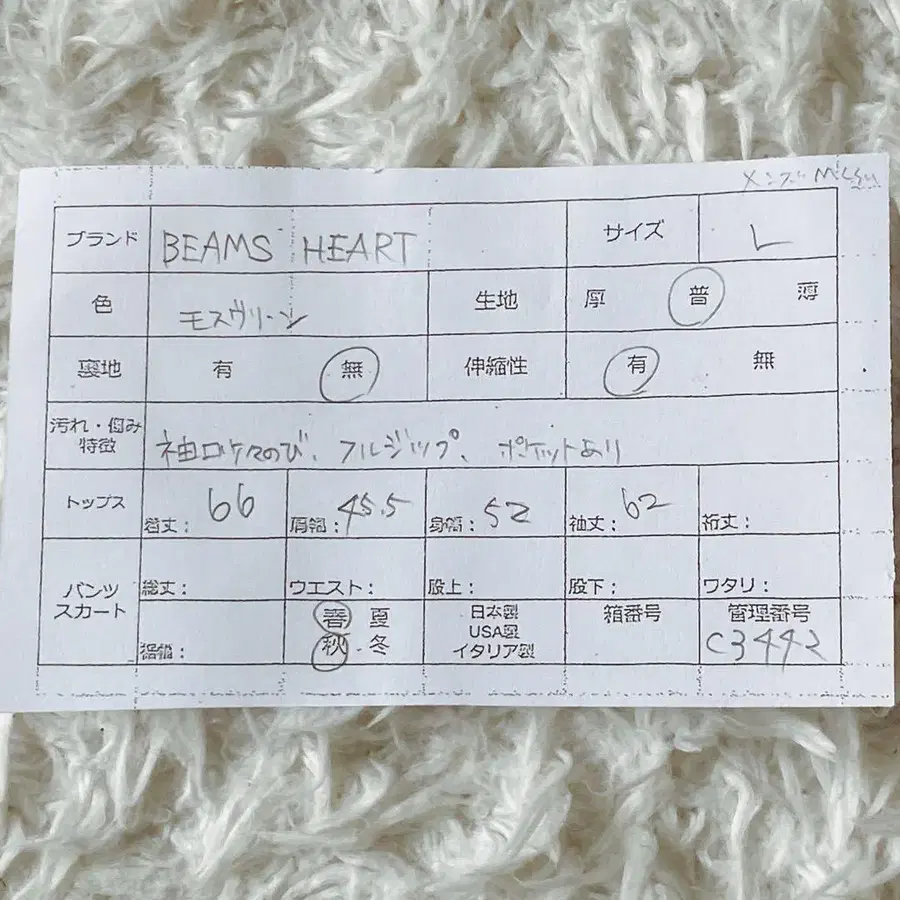 メンズ M〜Lくらい
ブランド BEAMS HEART サイズ L
色 モスグリーン 生地 厚 普 薄
裏地 有 無 伸縮性 有 無
汚れ・傷み
特徴
袖口少々のび、フルジップ、ポケットあり
トップス 着丈: 66 肩幅: 45.5 身幅: 52 袖丈: 62 裄丈:
パンツ
スカート
総丈: ウエスト: 股上: 股下: ワタリ:
裾幅:
春 夏
秋 冬
日本製
USA製
イタリア製
箱番号
管理番号
C3442